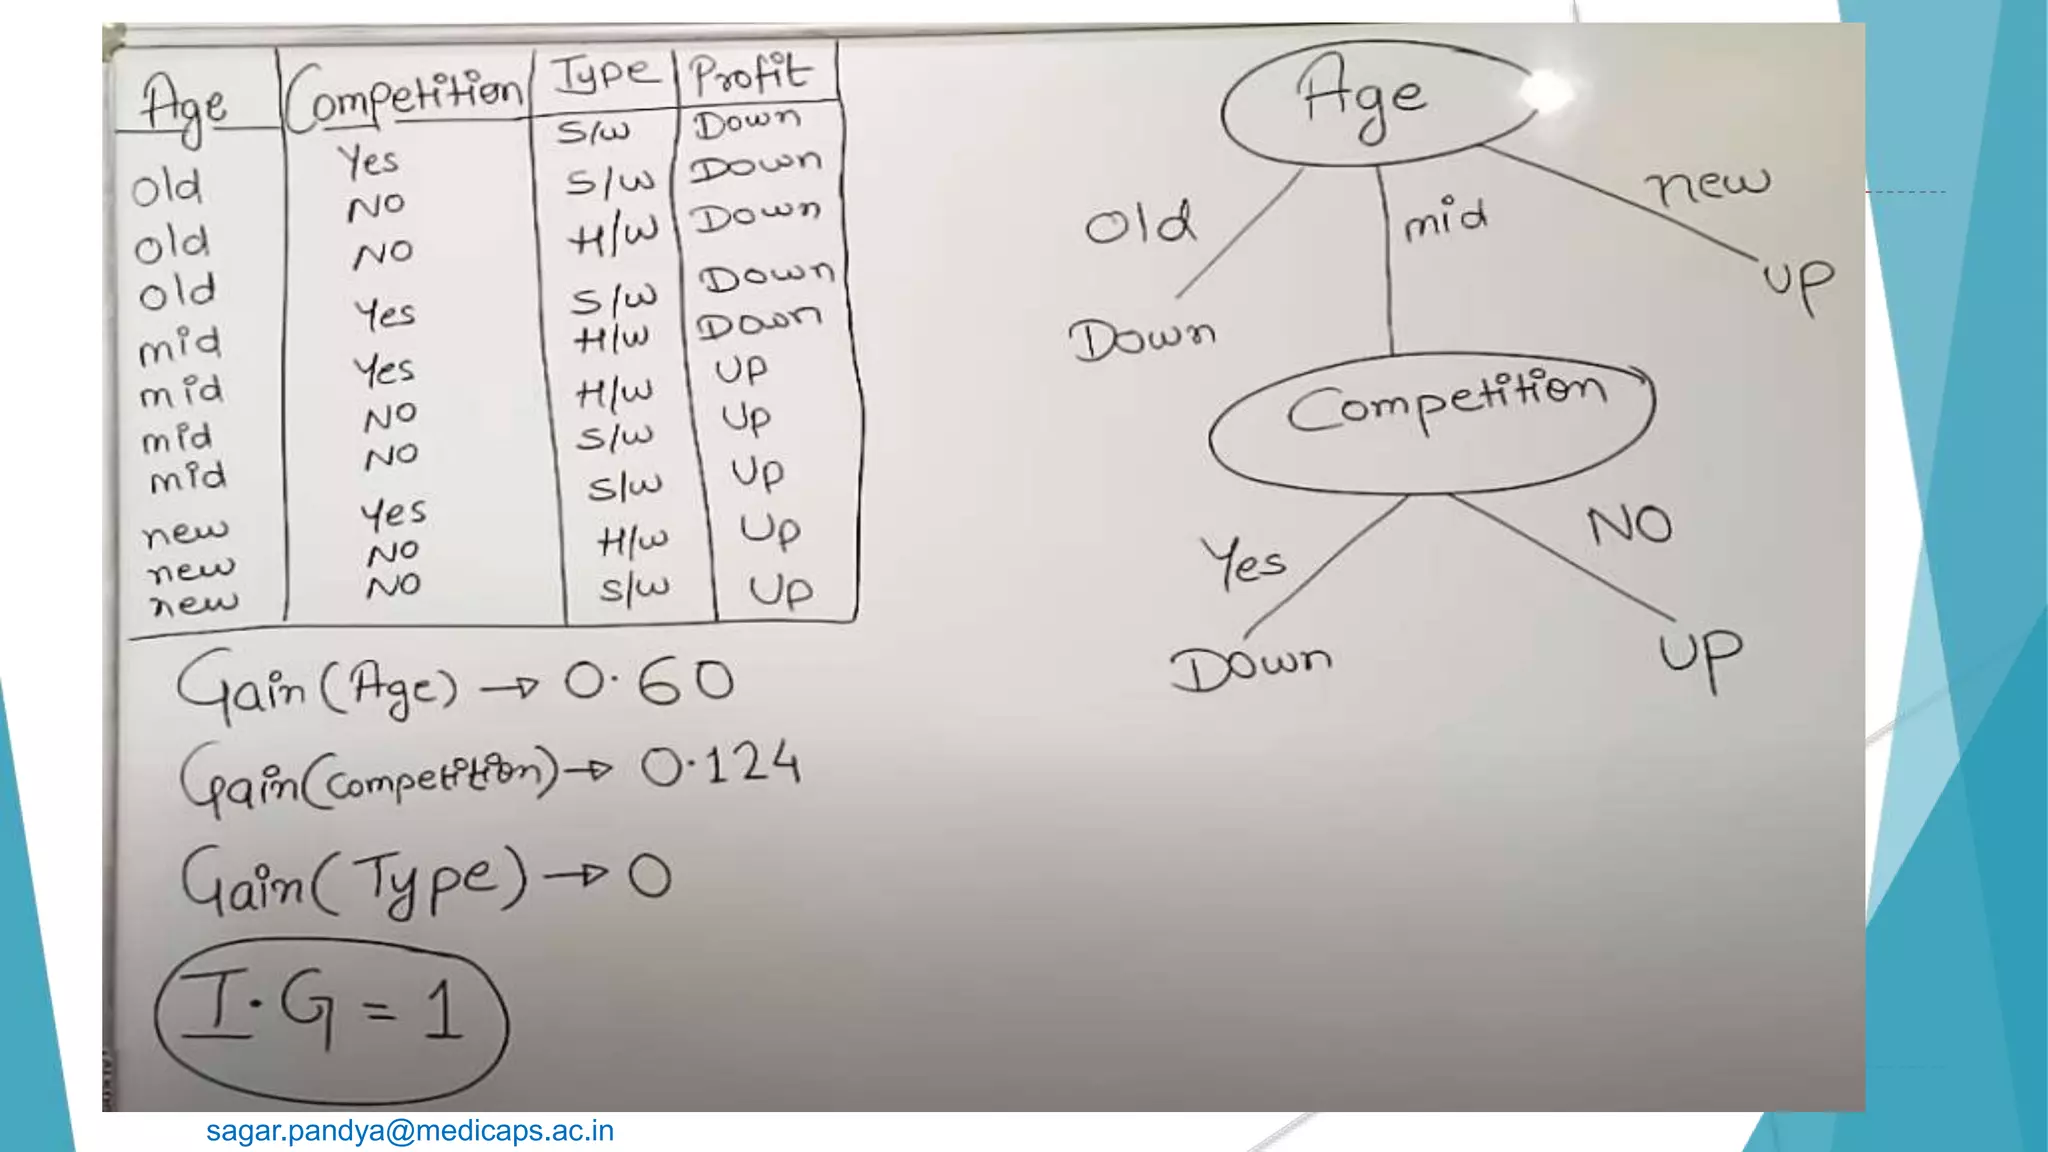 Age Competition Type Profit
Old Yes S/W Down
Old NO S/W Down
Old NO H/W Down
mid Yes S/W Down
mid Yes H/W Down
mid NO H/W UP
mid NO S/W UP
new Yes S/W UP
new NO H/W UP
new NO S/W UP
Gain(Age) → 0.60
Gain(Competition) → 0.124
Gain(Type) → 0
I.G = 1
Age
Old mid new
Down UP
Competition
Yes NO
Down UP
sagar.pandya@medicaps.ac.in